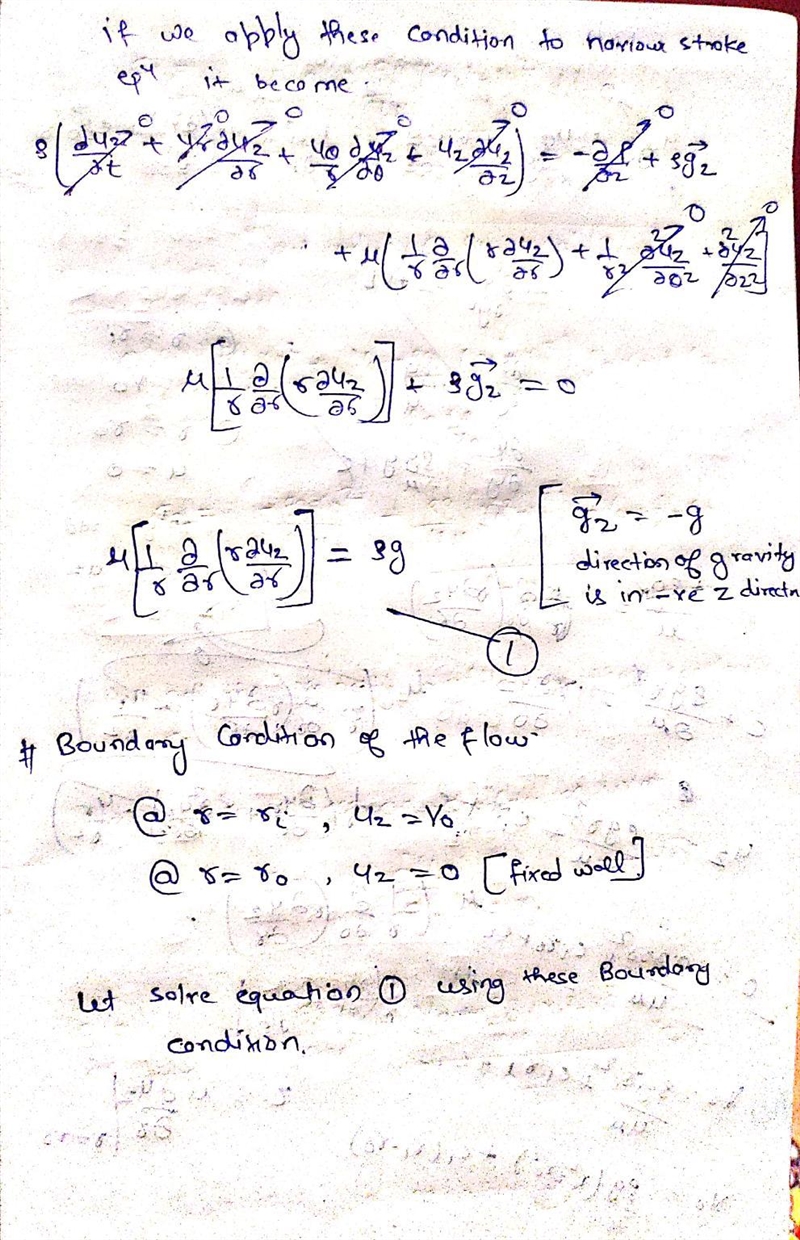 if we apply these condition to naviour stroke
eqⁿ it become.
ρ(∂u_z/∂t ⁰ + u_r ∂u_z/∂r ⁰ + u_θ/r ∂u_z/∂θ ⁰ + u_z ∂u_z/∂z ⁰) = -∂P/∂z ⁰ + ρg⃗_z
+ μ(1/r ∂/∂r (r ∂u_z/∂r) + 1/r² ∂²u_z/∂θ² ⁰ + ∂²u_z/∂z² ⁰]
μ[1/r ∂/∂r (r ∂u_z/∂r)] + ρg⃗_z = 0
μ[1/r ∂/∂r (r ∂u_z/∂r)] = ρg
[g⃗_z = -g
direction of gravity
is in -ve z directn
①
# Boundary Condition of the flow
@ r = r_i , u_z = V_0
@ r = r_o , u_z = 0 [fixed wall]
Let solve equation ① using these Boundary
condition.